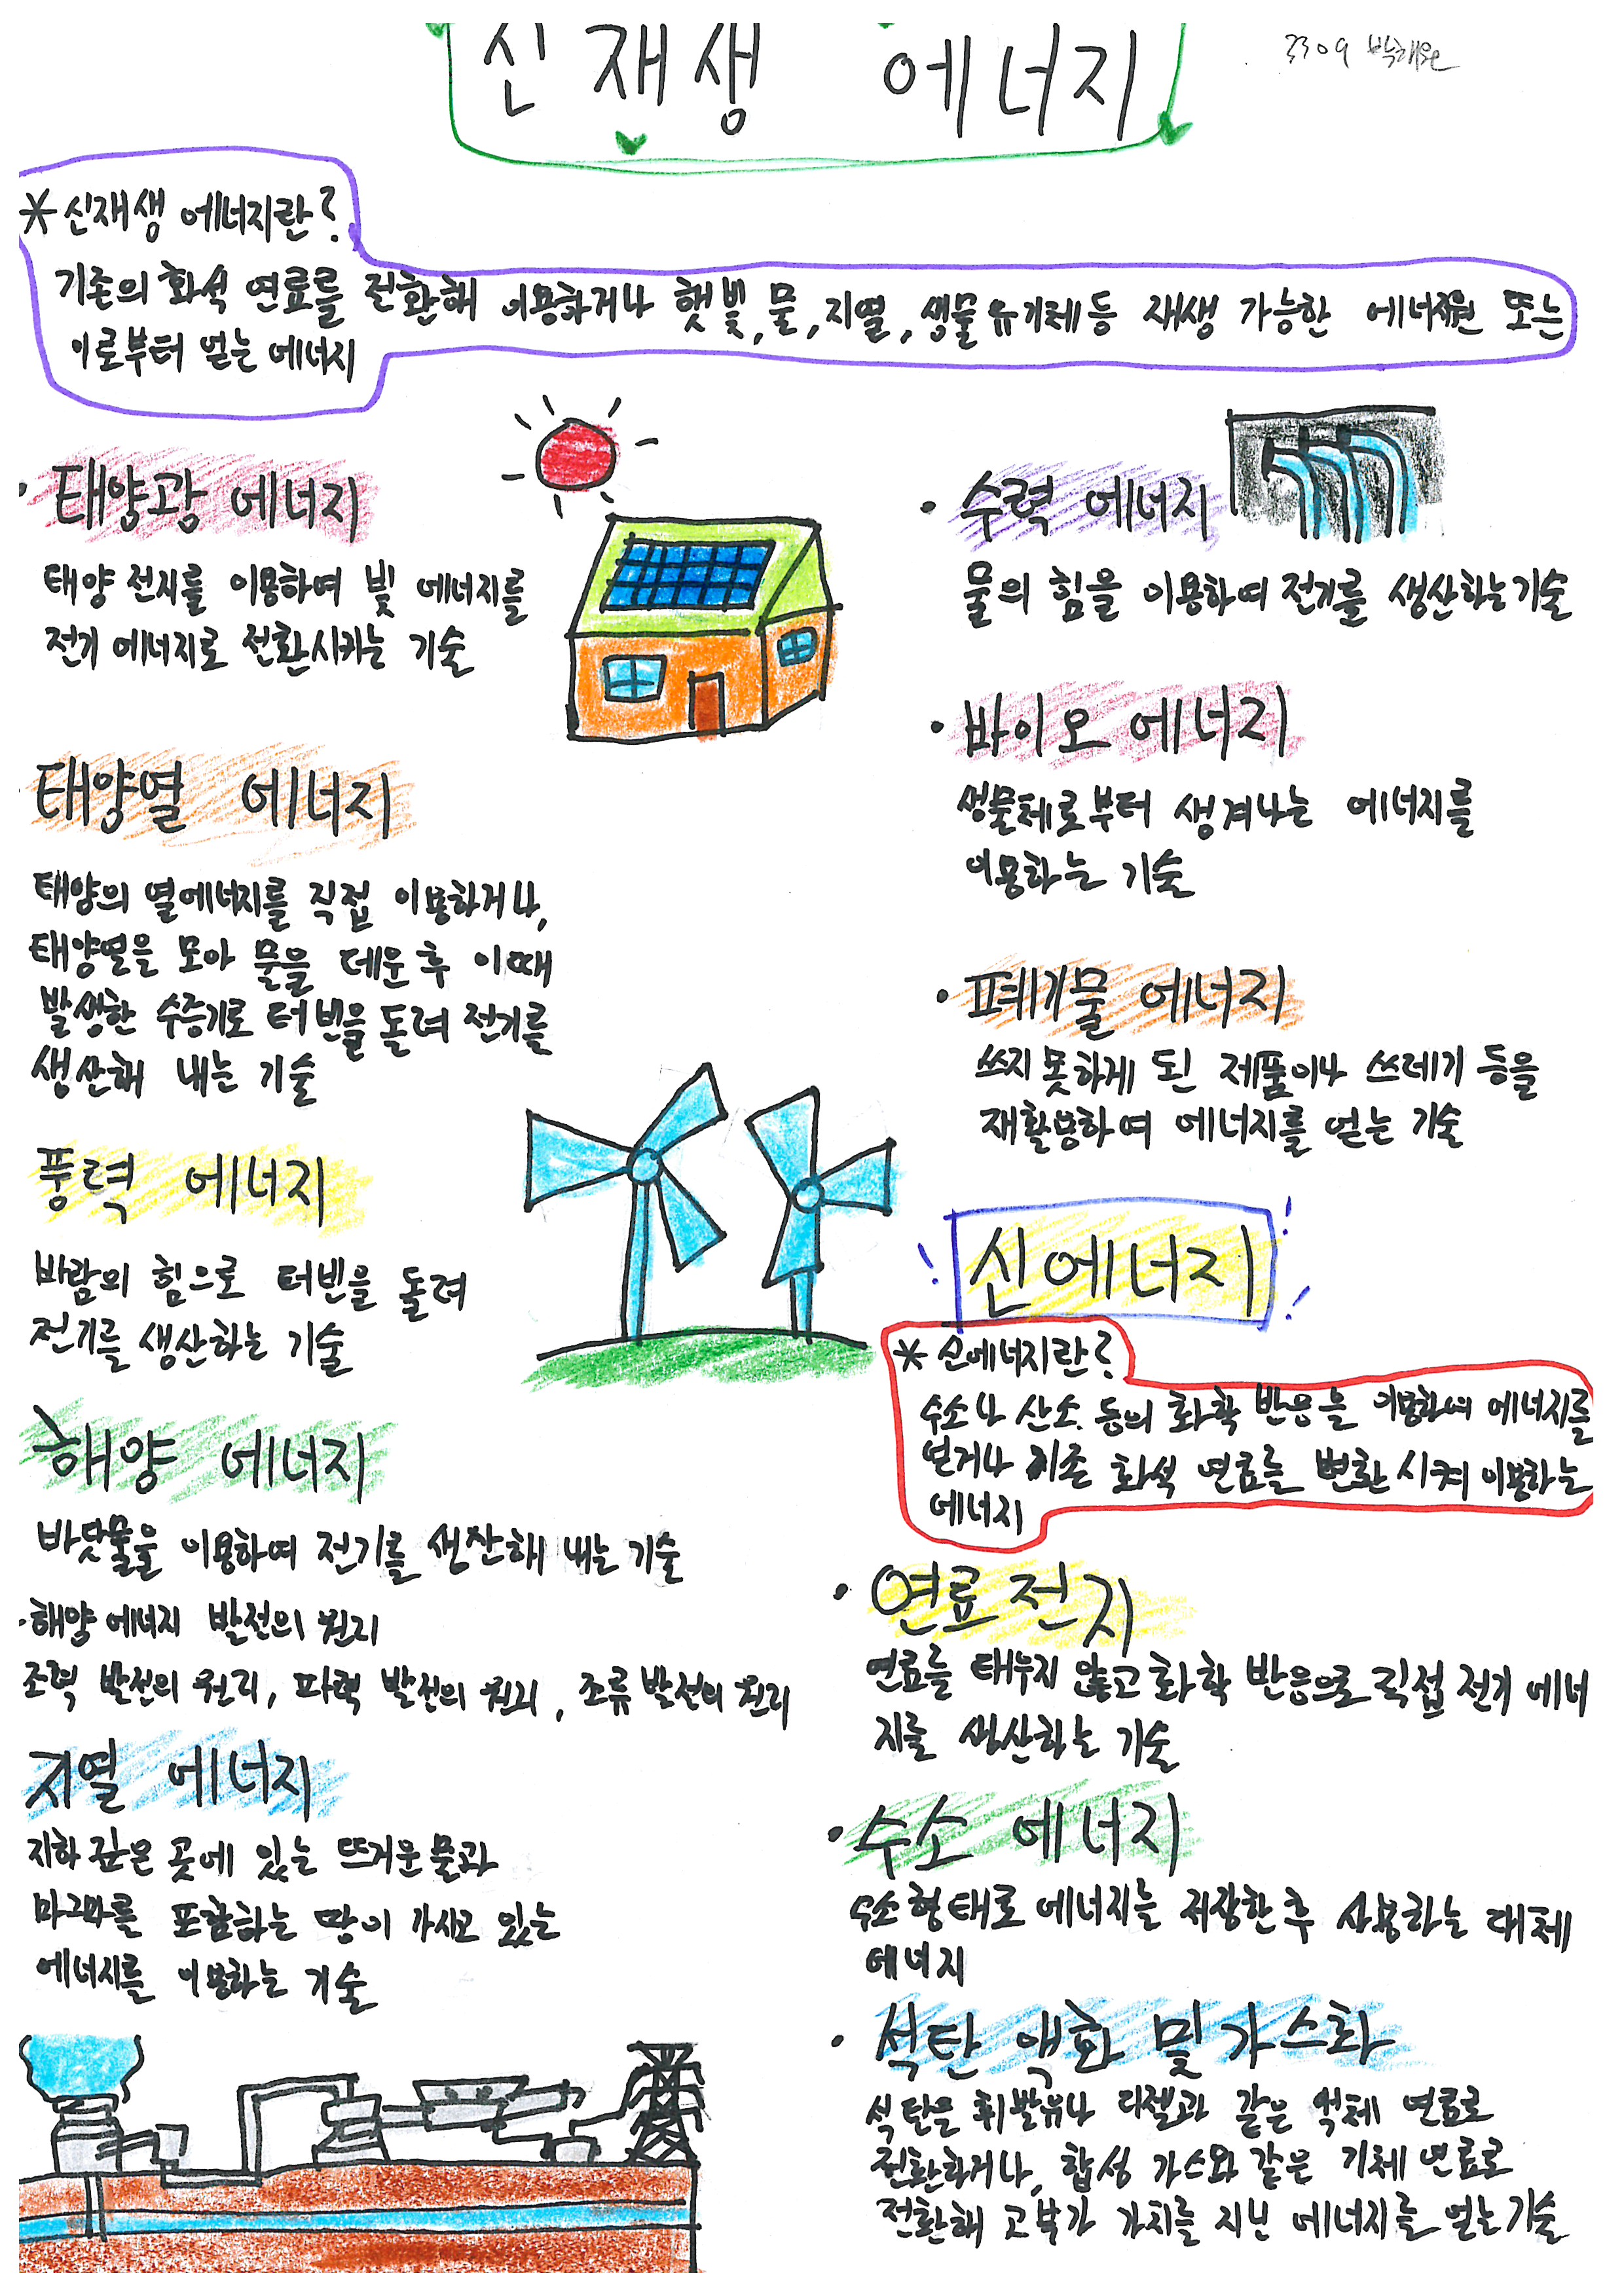 신재생 에너지
3309 박해원
* 신재생 에너지란?
기존의 화석 연료를 전환해 이용하거나 햇빛, 물, 지열, 생물유기체 등 재생 가능한 에너지원 또는
이로부터 얻는 에너지
· 태양광 에너지
태양 전지를 이용하여 빛 에너지를
전기 에너지로 전환시키는 기술
태양열 에너지
태양의 열에너지를 직접 이용하거나,
태양열을 모아 물을 데운 후 이때
발생한 수증기로 터빈을 돌려 전기를
생산해 내는 기술
풍력 에너지
바람의 힘으로 터빈을 돌려
전기를 생산하는 기술
해양 에너지
바닷물을 이용하여 전기를 생산해 내는 기술
· 해양 에너지 발전의 원리
조력 발전의 원리, 파력 발전의 원리, 조류 발전의 원리
지열 에너지
지하 깊은 곳에 있는 뜨거운 물과
마그마를 포함하는 땅이 가지고 있는
에너지를 이용하는 기술
· 수력 에너지
물의 힘을 이용하여 전기를 생산하는 기술
· 바이오 에너지
생물체로부터 생겨나는 에너지를
이용하는 기술
· 폐기물 에너지
쓰지 못하게 된 제품이나 쓰레기 등을
재활용하여 에너지를 얻는 기술
신에너지
* 신에너지란?
수소나 산소 등의 화학 반응을 이용하여 에너지를
얻거나 기존 화석 연료를 변환시켜 이용하는
에너지
· 연료 전지
연료를 태우지 않고 화학 반응으로 직접 전기 에너
지를 생산하는 기술
· 수소 에너지
수소 형태로 에너지를 저장한 후 사용하는 대체
에너지
· 석탄 액화 및 가스화
석탄을 휘발유나 디젤과 같은 액체 연료로
전환하거나, 합성 가스와 같은 기체 연료로
전환해 고부가 가치를 지닌 에너지를 얻는 기술